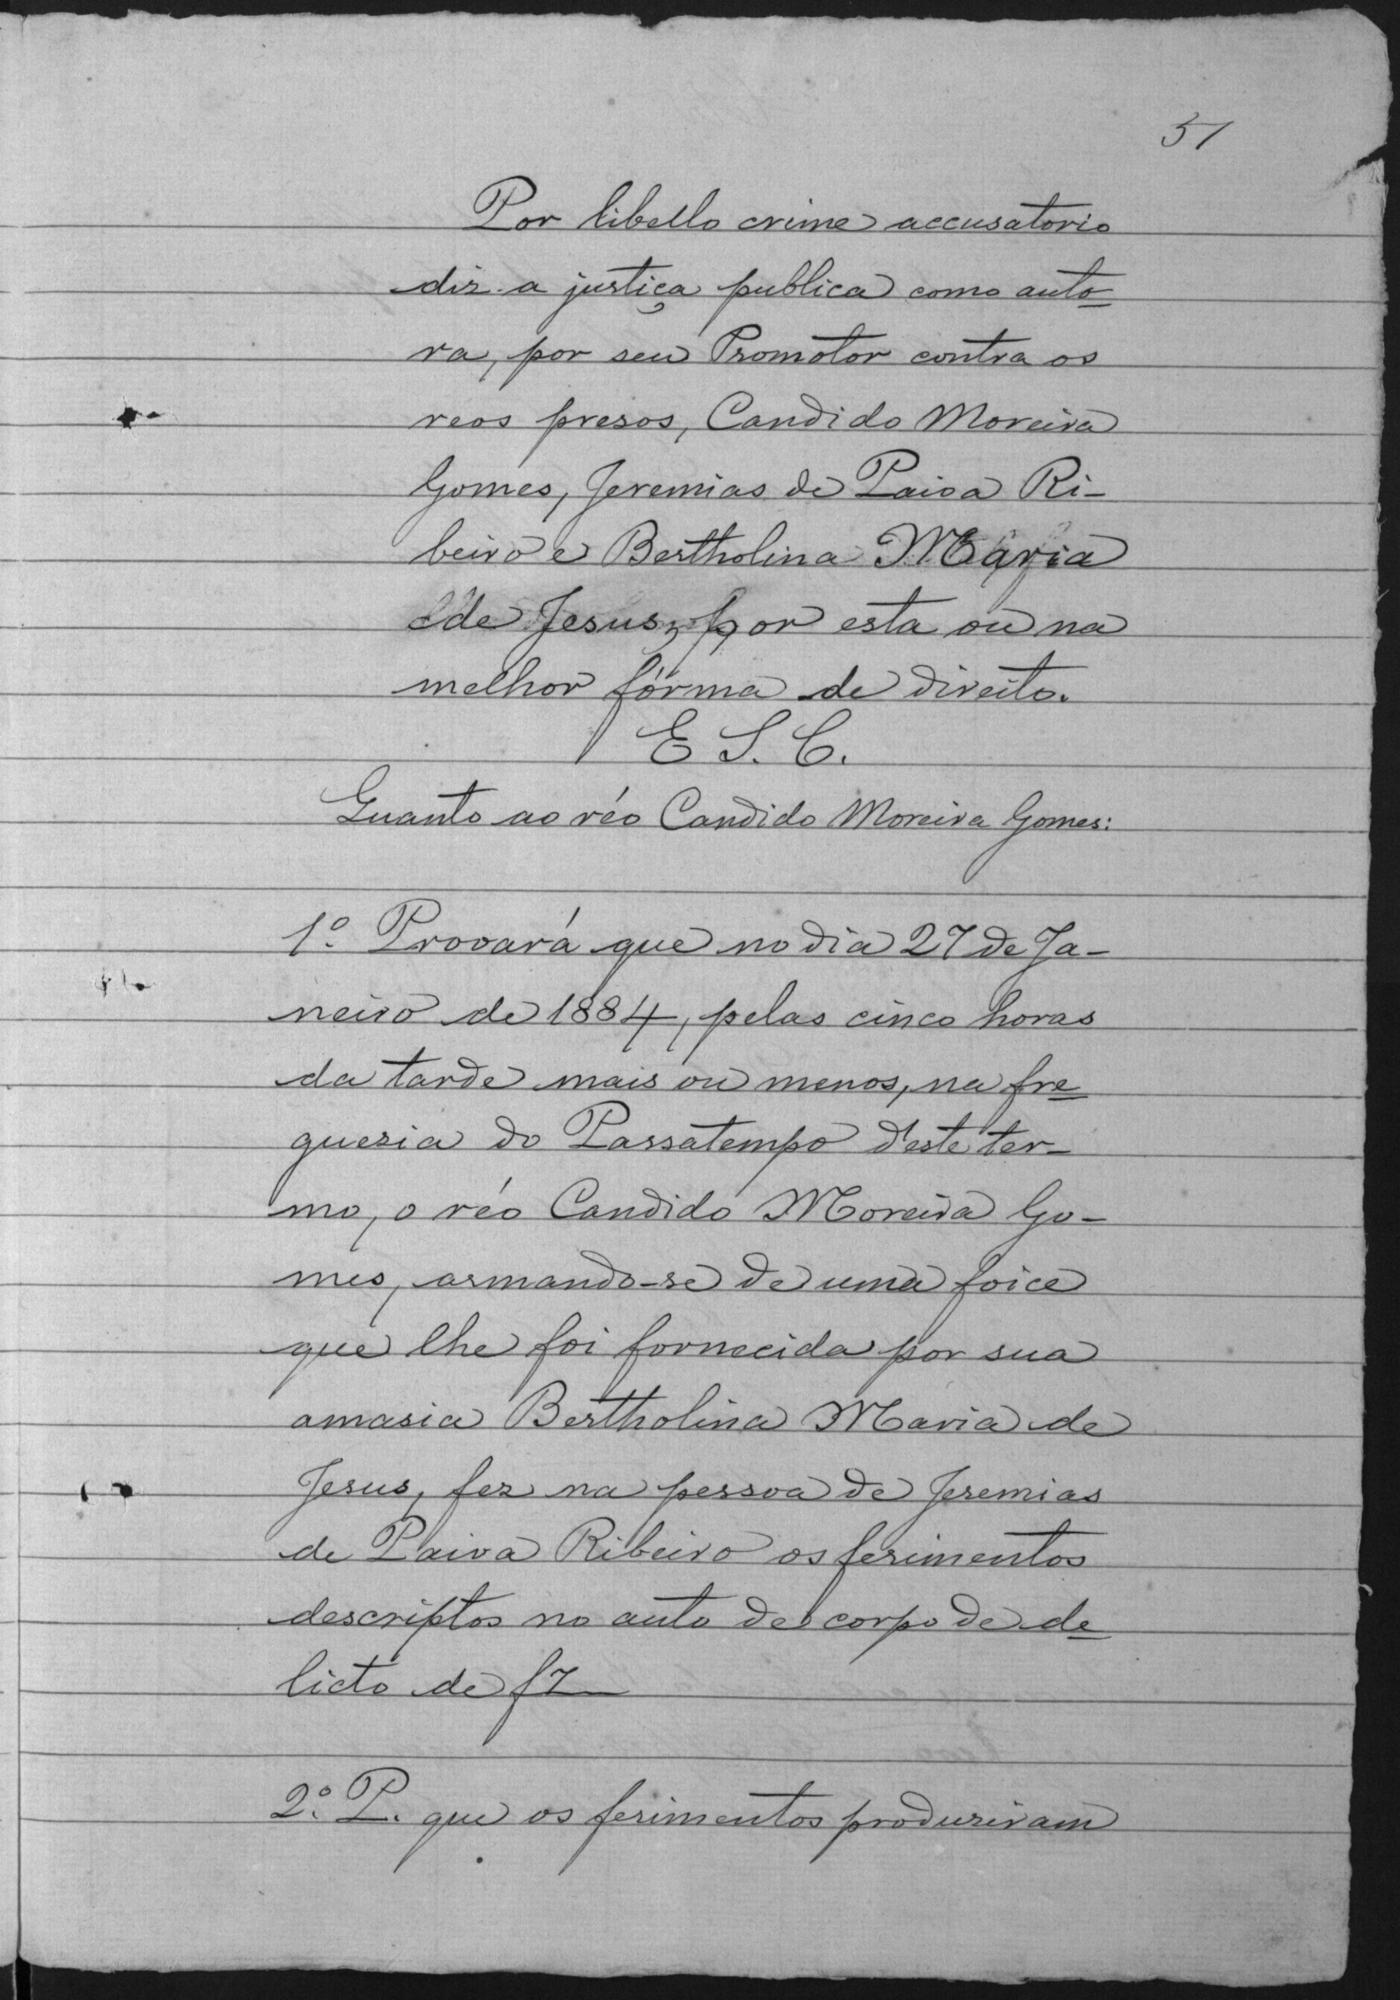 51
Por libello crime accusatorio
diz a justiça publica como auto=
ra, por seu Promotor contra os
reos presos, Candido Moreira
Gomes, Jeremias de Paiva Ri-
beiro e Bertholina Maria
de Jesus, por esta ou na
melhor fórma de direito.
E S. C.
Quanto ao réo Candido Moreira Gomes:
1º. Provará que no dia 27 de Ja-
neiro de 1884, pelas cinco horas
da tarde mais ou menos, na fre=
guezia do Passatempo d'este ter-
mo, o réo Candido Moreira Go-
mes, armando-se de uma foice
que lhe foi fornecida por sua
amasia Bertholina Maria de
Jesus, fez na pessoa de Jeremias
de Paiva Ribeiro os ferimentos
descriptos no auto de corpo de de=
licto de f7
2º. P. que os ferimentos produziram